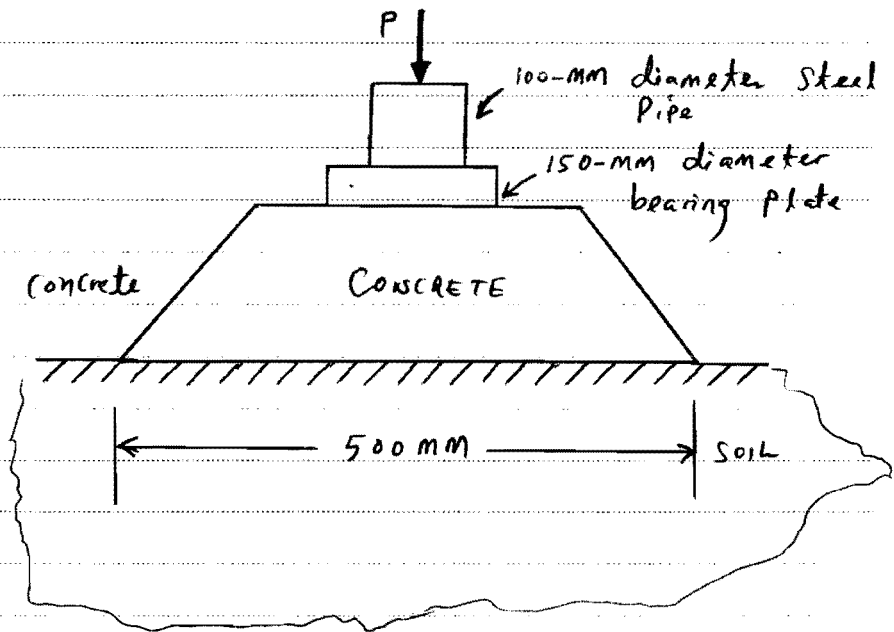 P
100-MM diameter Steel
Pipe
150-MM diameter
bearing Plate
Concrete
CONSCRETE
500 MM
SOIL